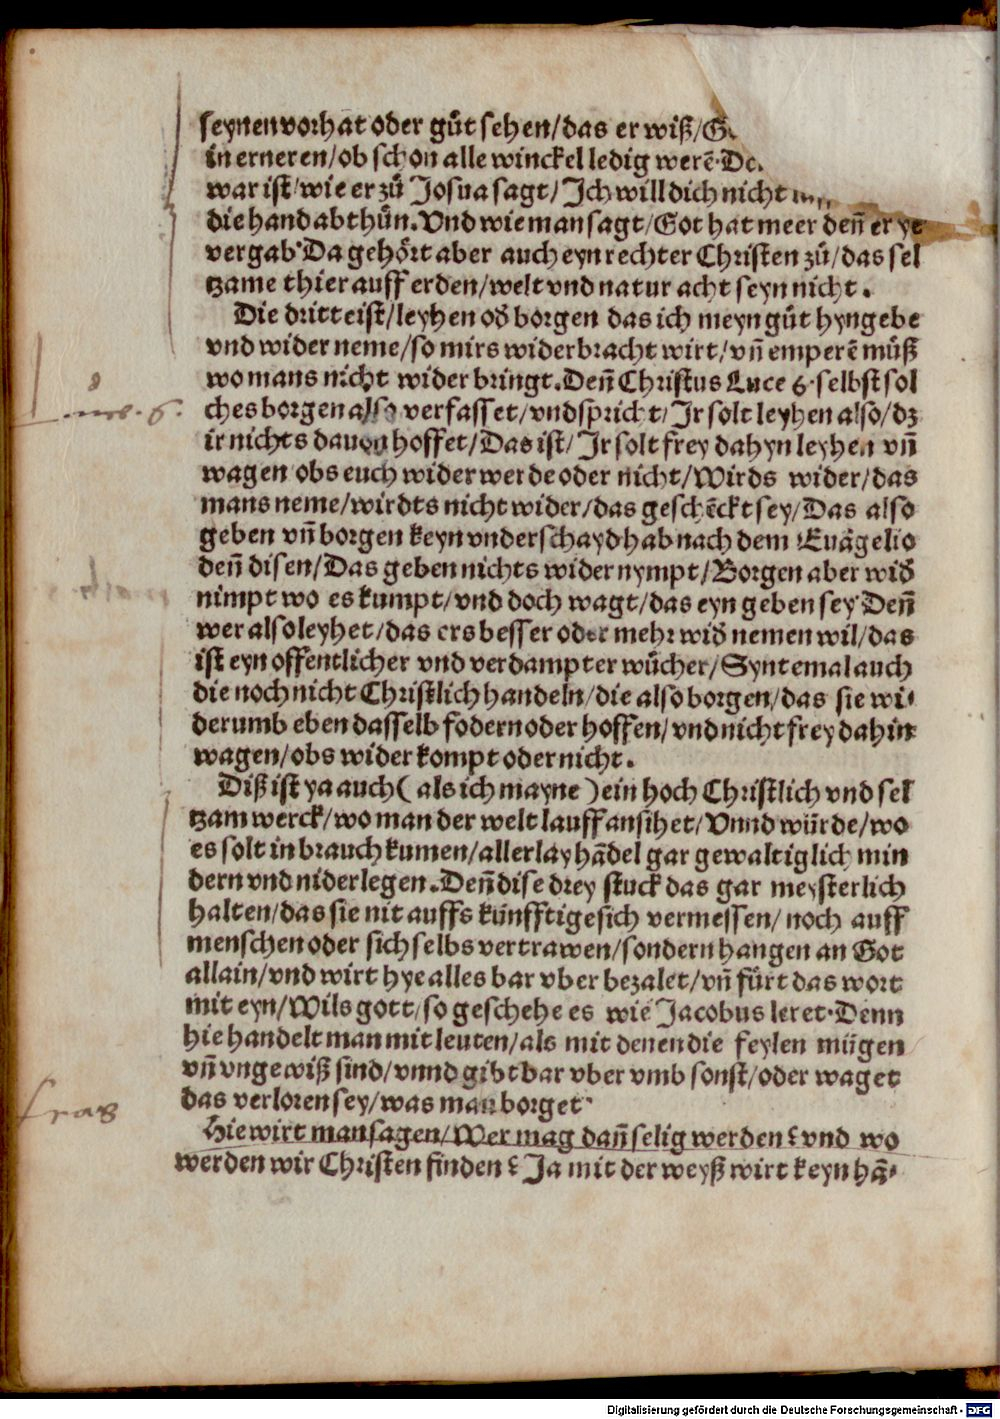 seynen vorhat oder gůt sehen/das er wiß/
in erneren/ob schon alle winckel ledig werē.
war ist/wie er zů Josua sagt/Ich will dich nicht
die hand abthůn. Vnd wie man sagt/Got hat meer deñ er ye
vergab. Da gehört aber auch eyn rechter Christen zů/das sel
tzame thier auff erden/welt vnd natur acht seyn nicht.
Die dritte ist/leyhen oď borgen das ich meyn gůt hyngebe
vnd wider neme/so mirs widerbracht wirt/vñ emperē můß
wo mans nicht wider bringt. Deñ Christus Luce 6. selbst sol
ches borgen also verfasset/vnd spricht/Ir solt leyhen also/dz
ir nichts dauon hoffet/Das ist/Ir solt frey dahyn leyhen vñ
wagen obs euch wider werde oder nicht/Wirds wider/das
mans neme/wirdts nicht wider/das geschēckt sey/Das also
geben vñ borgen keyn vnderschayd hab nach dem Euāgelio
deñ disen/Das geben nichts wider nympt/Borgen aber wiď
nimpt wo es kumpt/vnd doch wagt/das eyn geben sey Deñ
wer also leyhet/das ers besser oder mehr wiď nemen wil/das
ist eyn offentlicher vnd verdampter wůcher/Syntemal auch
die noch nicht Christlich handeln/die also borgen/das sie wi-
derumb eben dasselb fodern oder hoffen/vnd nicht frey dahin
wagen/obs wider kompt oder nicht.
Diß ist ya auch ( als ich mayne ) ein hoch Christlich vnd sel
tzam werck/wo man der welt lauff ansihet/Vnnd würde/wo
es solt in brauch kumen/allerlay hādel gar gewaltiglich min
dern vnd niderlegen. Deñ dise drey stuck das gar meysterlich
halten/das sie nit auffs künfftige sich vermessen/noch auff
menschen oder sich selbs vertrawen/sondern hangen an Got
allain/vnd wirt hye alles bar vber bezalet/vñ fürt das wort
mit eyn/Wils gott/so geschehe es wie Jacobus leret. Denn
hie handelt man mit leuten/als mit denen die feylen mügen
vñ vngewiß sind/vnnd gibt bar vber vmb sonst/oder waget
das verloren sey/was man borget
fras
Hie wirt man sagen/Wer mag dañ selig werden? vnd wo
werden wir Christen finden? Ja mit der weyß wirt keyn hā-
Digitalisierung gefördert durch die Deutsche Forschungsgemeinschaft - DFG